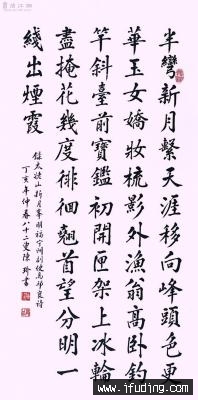 半彎新月繫天涯移向峰頭色更
華玉女嬌妝梳影外漁翁高臥釣
竿斜臺前寶鑑初開匣架上冰輪
盡掩花幾度徘徊翹首望分明一
綫出煙霞
錄太姥山新月峯明福宁州判史馬邦良詩
丁亥年仲春八十二叟陳玲書
www.ifuding.com